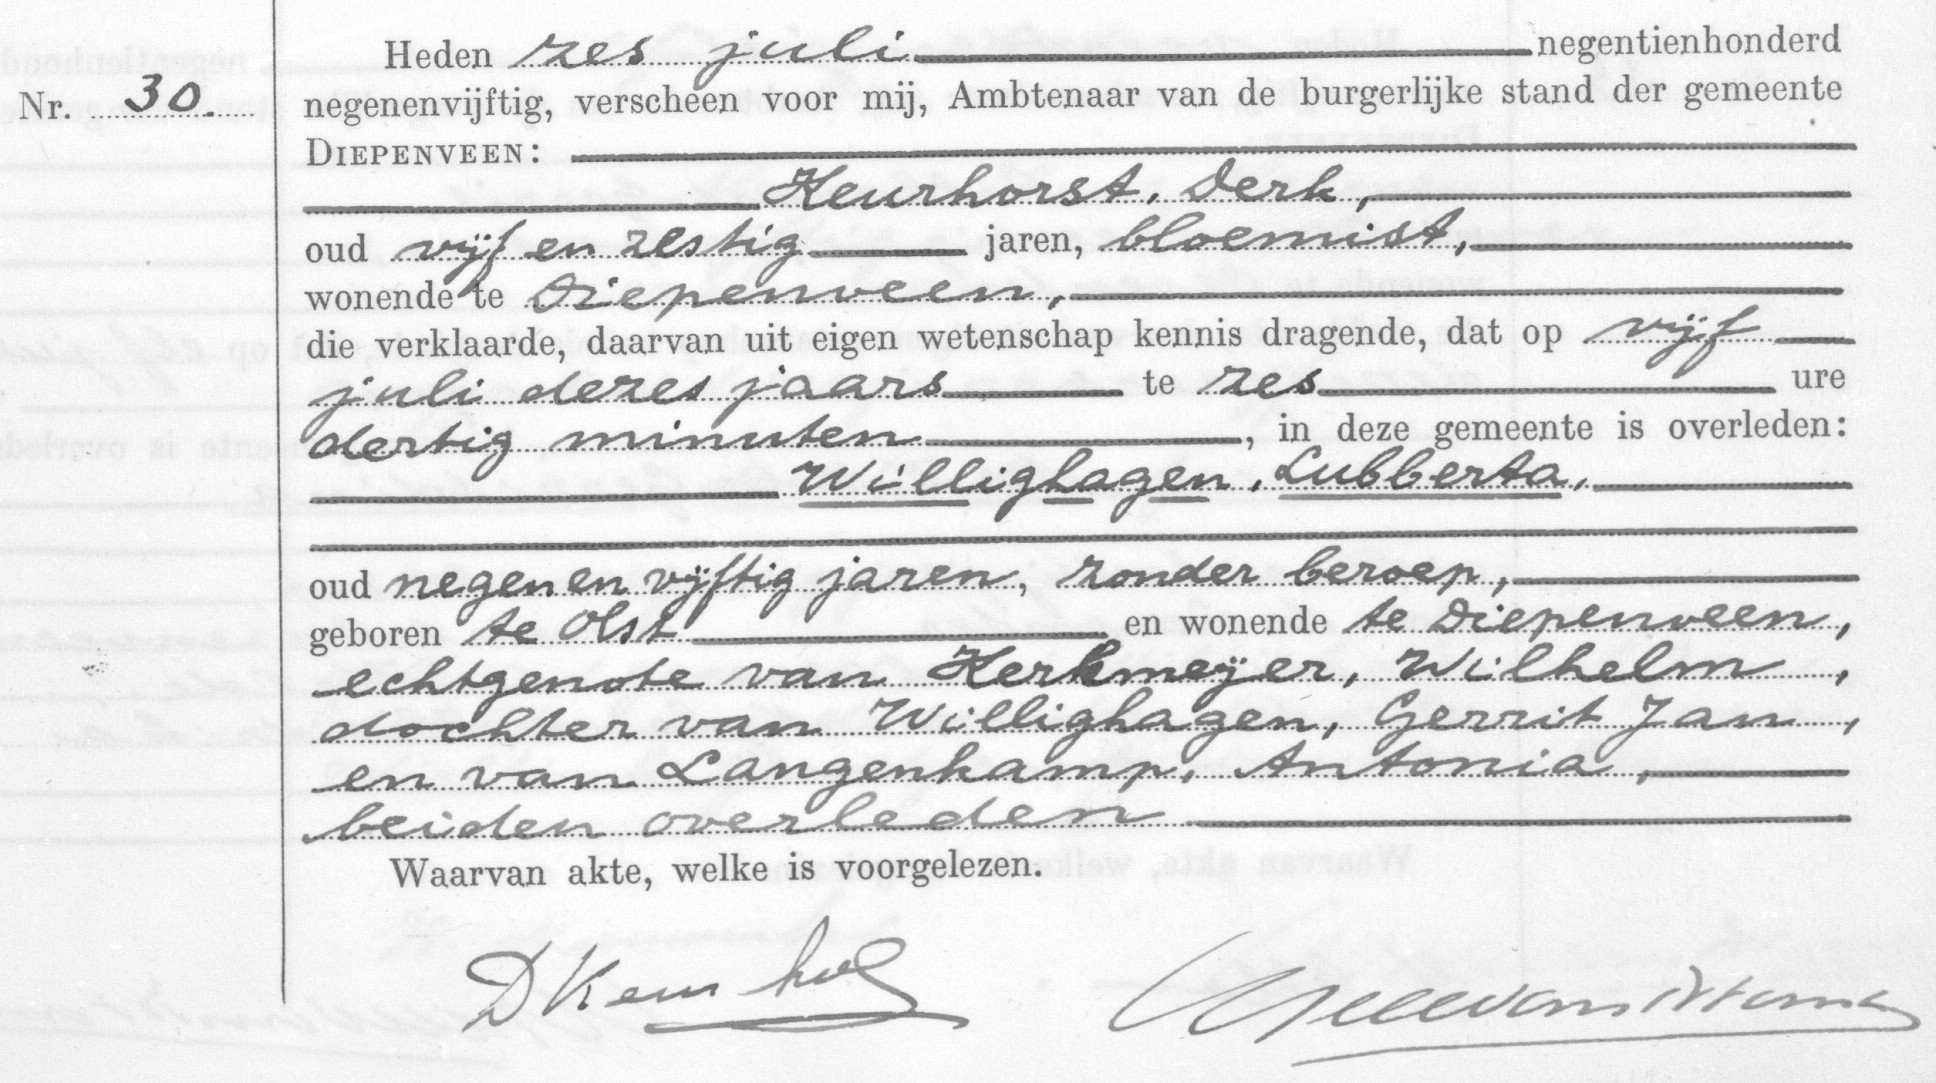 Heden zes juli negentienhonderd
Nr. 30. negenenvijftig, verscheen voor mij, Ambtenaar van de burgerlijke stand der gemeente
DIEPENVEEN:
Keurhorst, Derk,
oud vijf en zestig jaren, bloemist,
wonende te Diepenveen,
die verklaarde, daarvan uit eigen wetenschap kennis dragende, dat op vijf
juli dezes jaars te zes ure
dertig minuten, in deze gemeente is overleden:
Willighagen, Lubberta,
oud negen en vijftig jaren, zonder beroep,
geboren te Olst en wonende te Diepenveen,
echtgenote van Kerkmeijer, Wilhelm,
dochter van Willighagen, Gerrit Jan,
en van Langenkamp, Antonia,
beiden overleden
Waarvan akte, welke is voorgelezen.